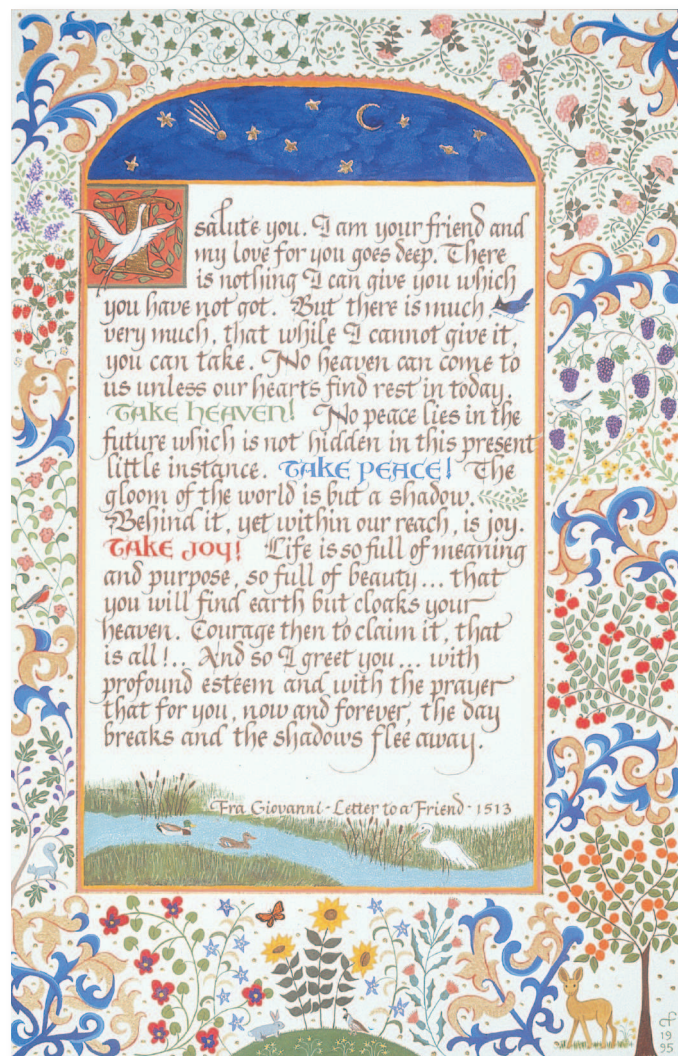 I
salute you. I am your friend and
my love for you goes deep. There
is nothing I can give you which
you have not got. But there is much
very much, that while I cannot give it,
you can take. No heaven can come to
us unless our hearts find rest in today.
TAKE HEAVEN! No peace lies in the
future which is not hidden in this present
little instance. TAKE PEACE! The
gloom of the world is but a shadow.
Behind it, yet within our reach, is joy.
TAKE JOY! Life is so full of meaning
and purpose, so full of beauty... that
you will find earth but cloaks your
heaven. Courage then to claim it, that
is all!.. And so I greet you... with
profound esteem and with the prayer
that for you, now and forever, the day
breaks and the shadows flee away.
Fra Giovanni - Letter to a Friend - 1513
cf
19
95